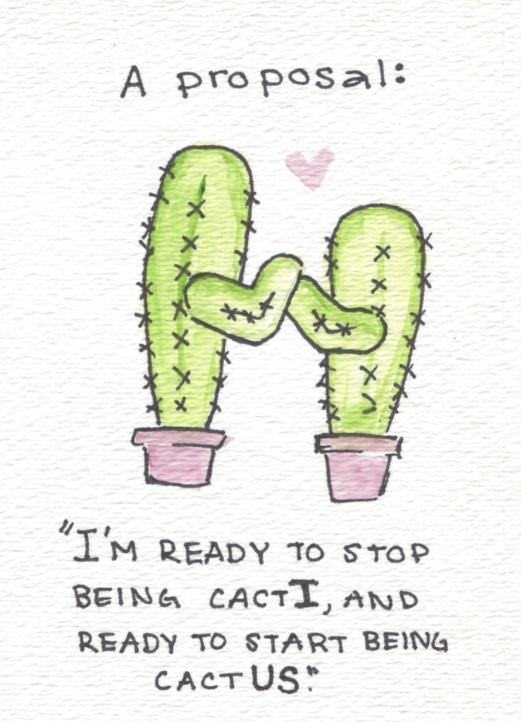 A proposal:
"I'M READY TO STOP
BEING CACTI, AND
READY TO START BEING
CACTUS."